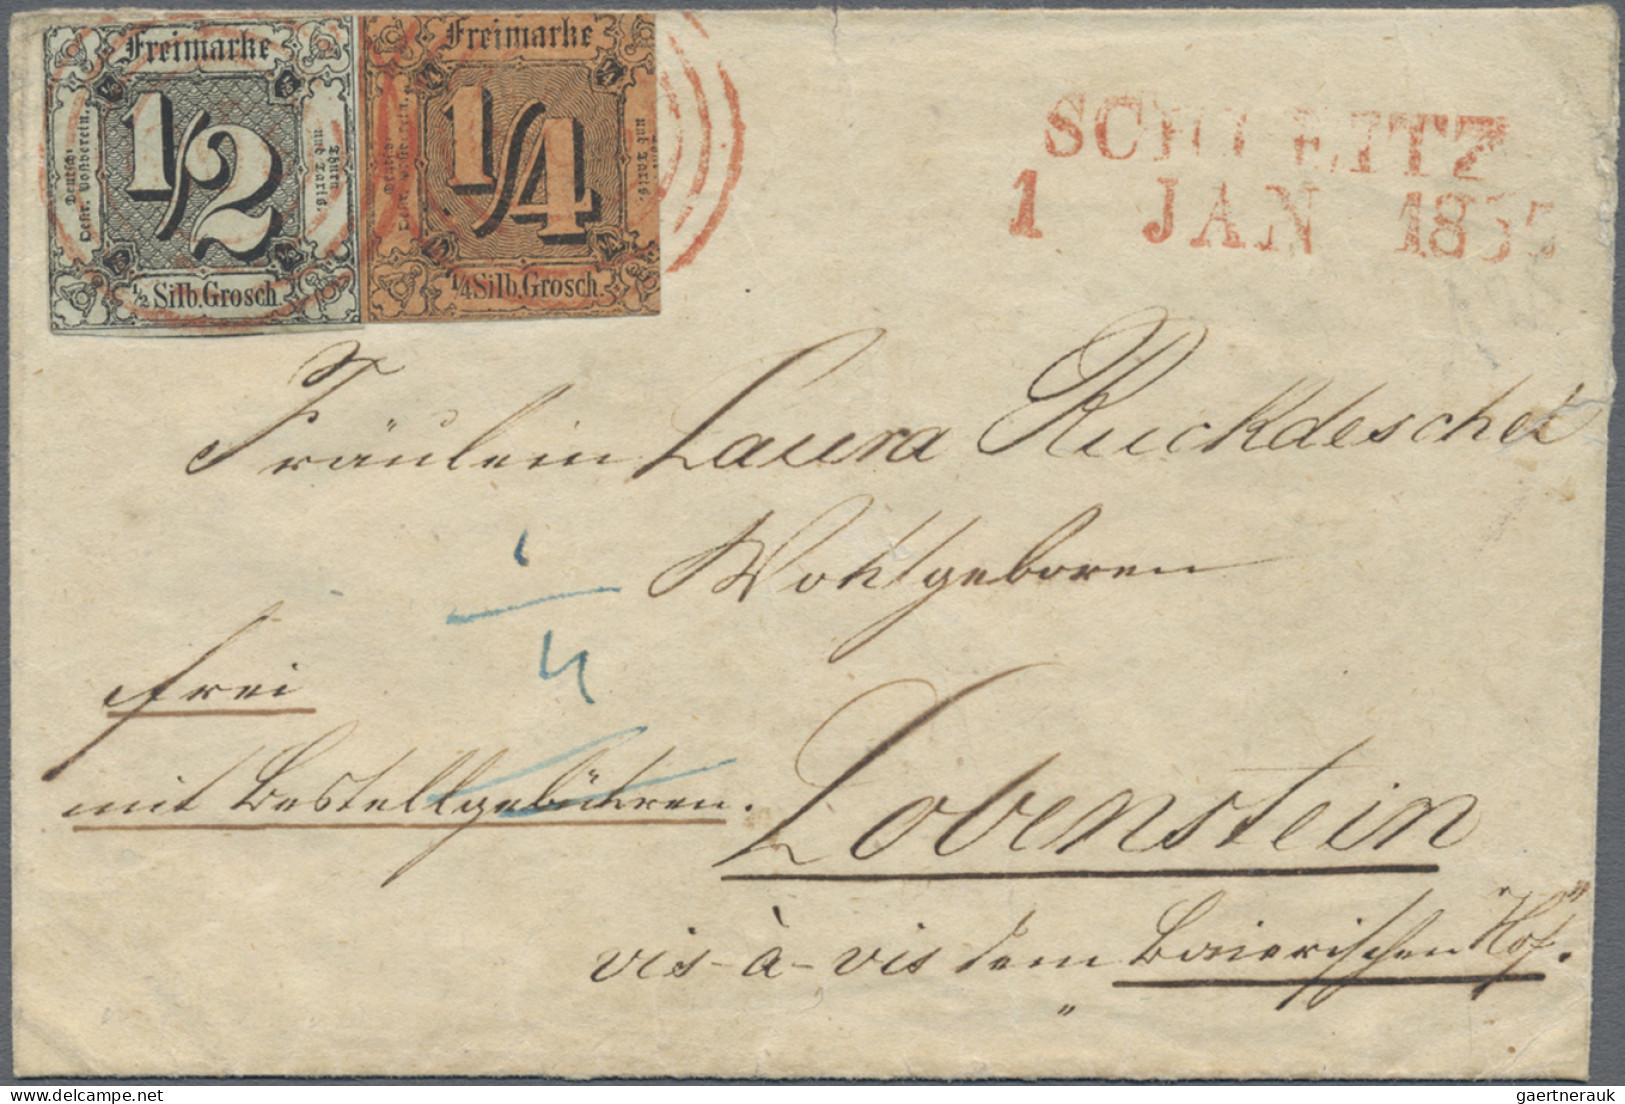 Freimarke
Deutsch:
Oestr. Postverein.
1/2
Thurn
und Taxis.
1/2 Silb. Grosch.
Freimarke
1/4
und Taxis.
1/4 Silb. Grosch.
SCHLEITZ
1 JAN 185
Fräulein Laura Ruckdeschel
Wohlgeboren
1/4
frei
mit Bestellgebühren.
Lobenstein
vis-à-vis dem Baierischen Hof.
gaertnerauk